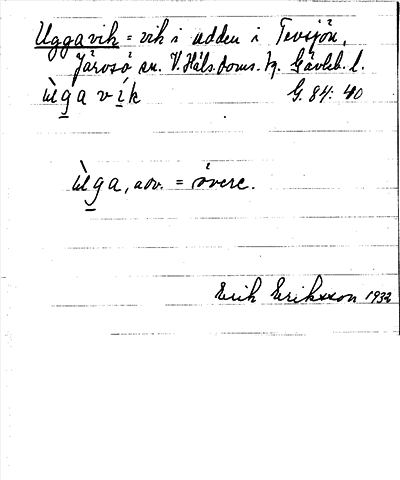 Uggavik = vik i udden i Tevsjön,
Järvsö sn. V. Häls. doms. tg. Gävleb. l.
ùg̲a vi̲k G. 84: 40
ùg̲a, adv. = övere.
Erik Eriksson 1932